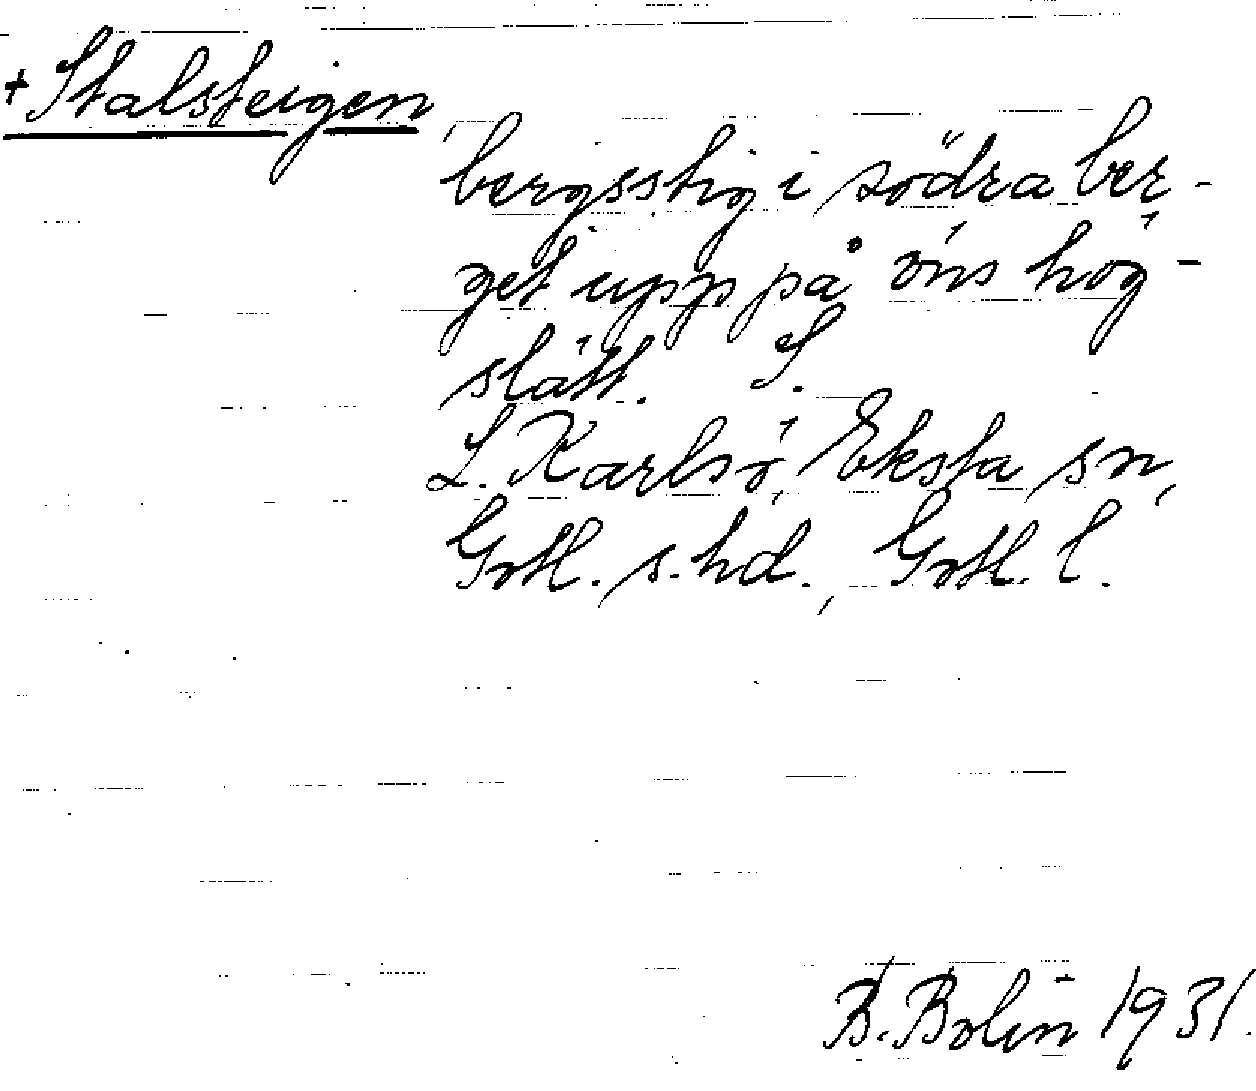 + Stalsteigen
bergsstig i södra ber-
get upp på öns hög-
slätt. S.
L. Karlsö, Eksta sn,
Gotl. s. hd., Gotl. l.
B. Bolin 1931.